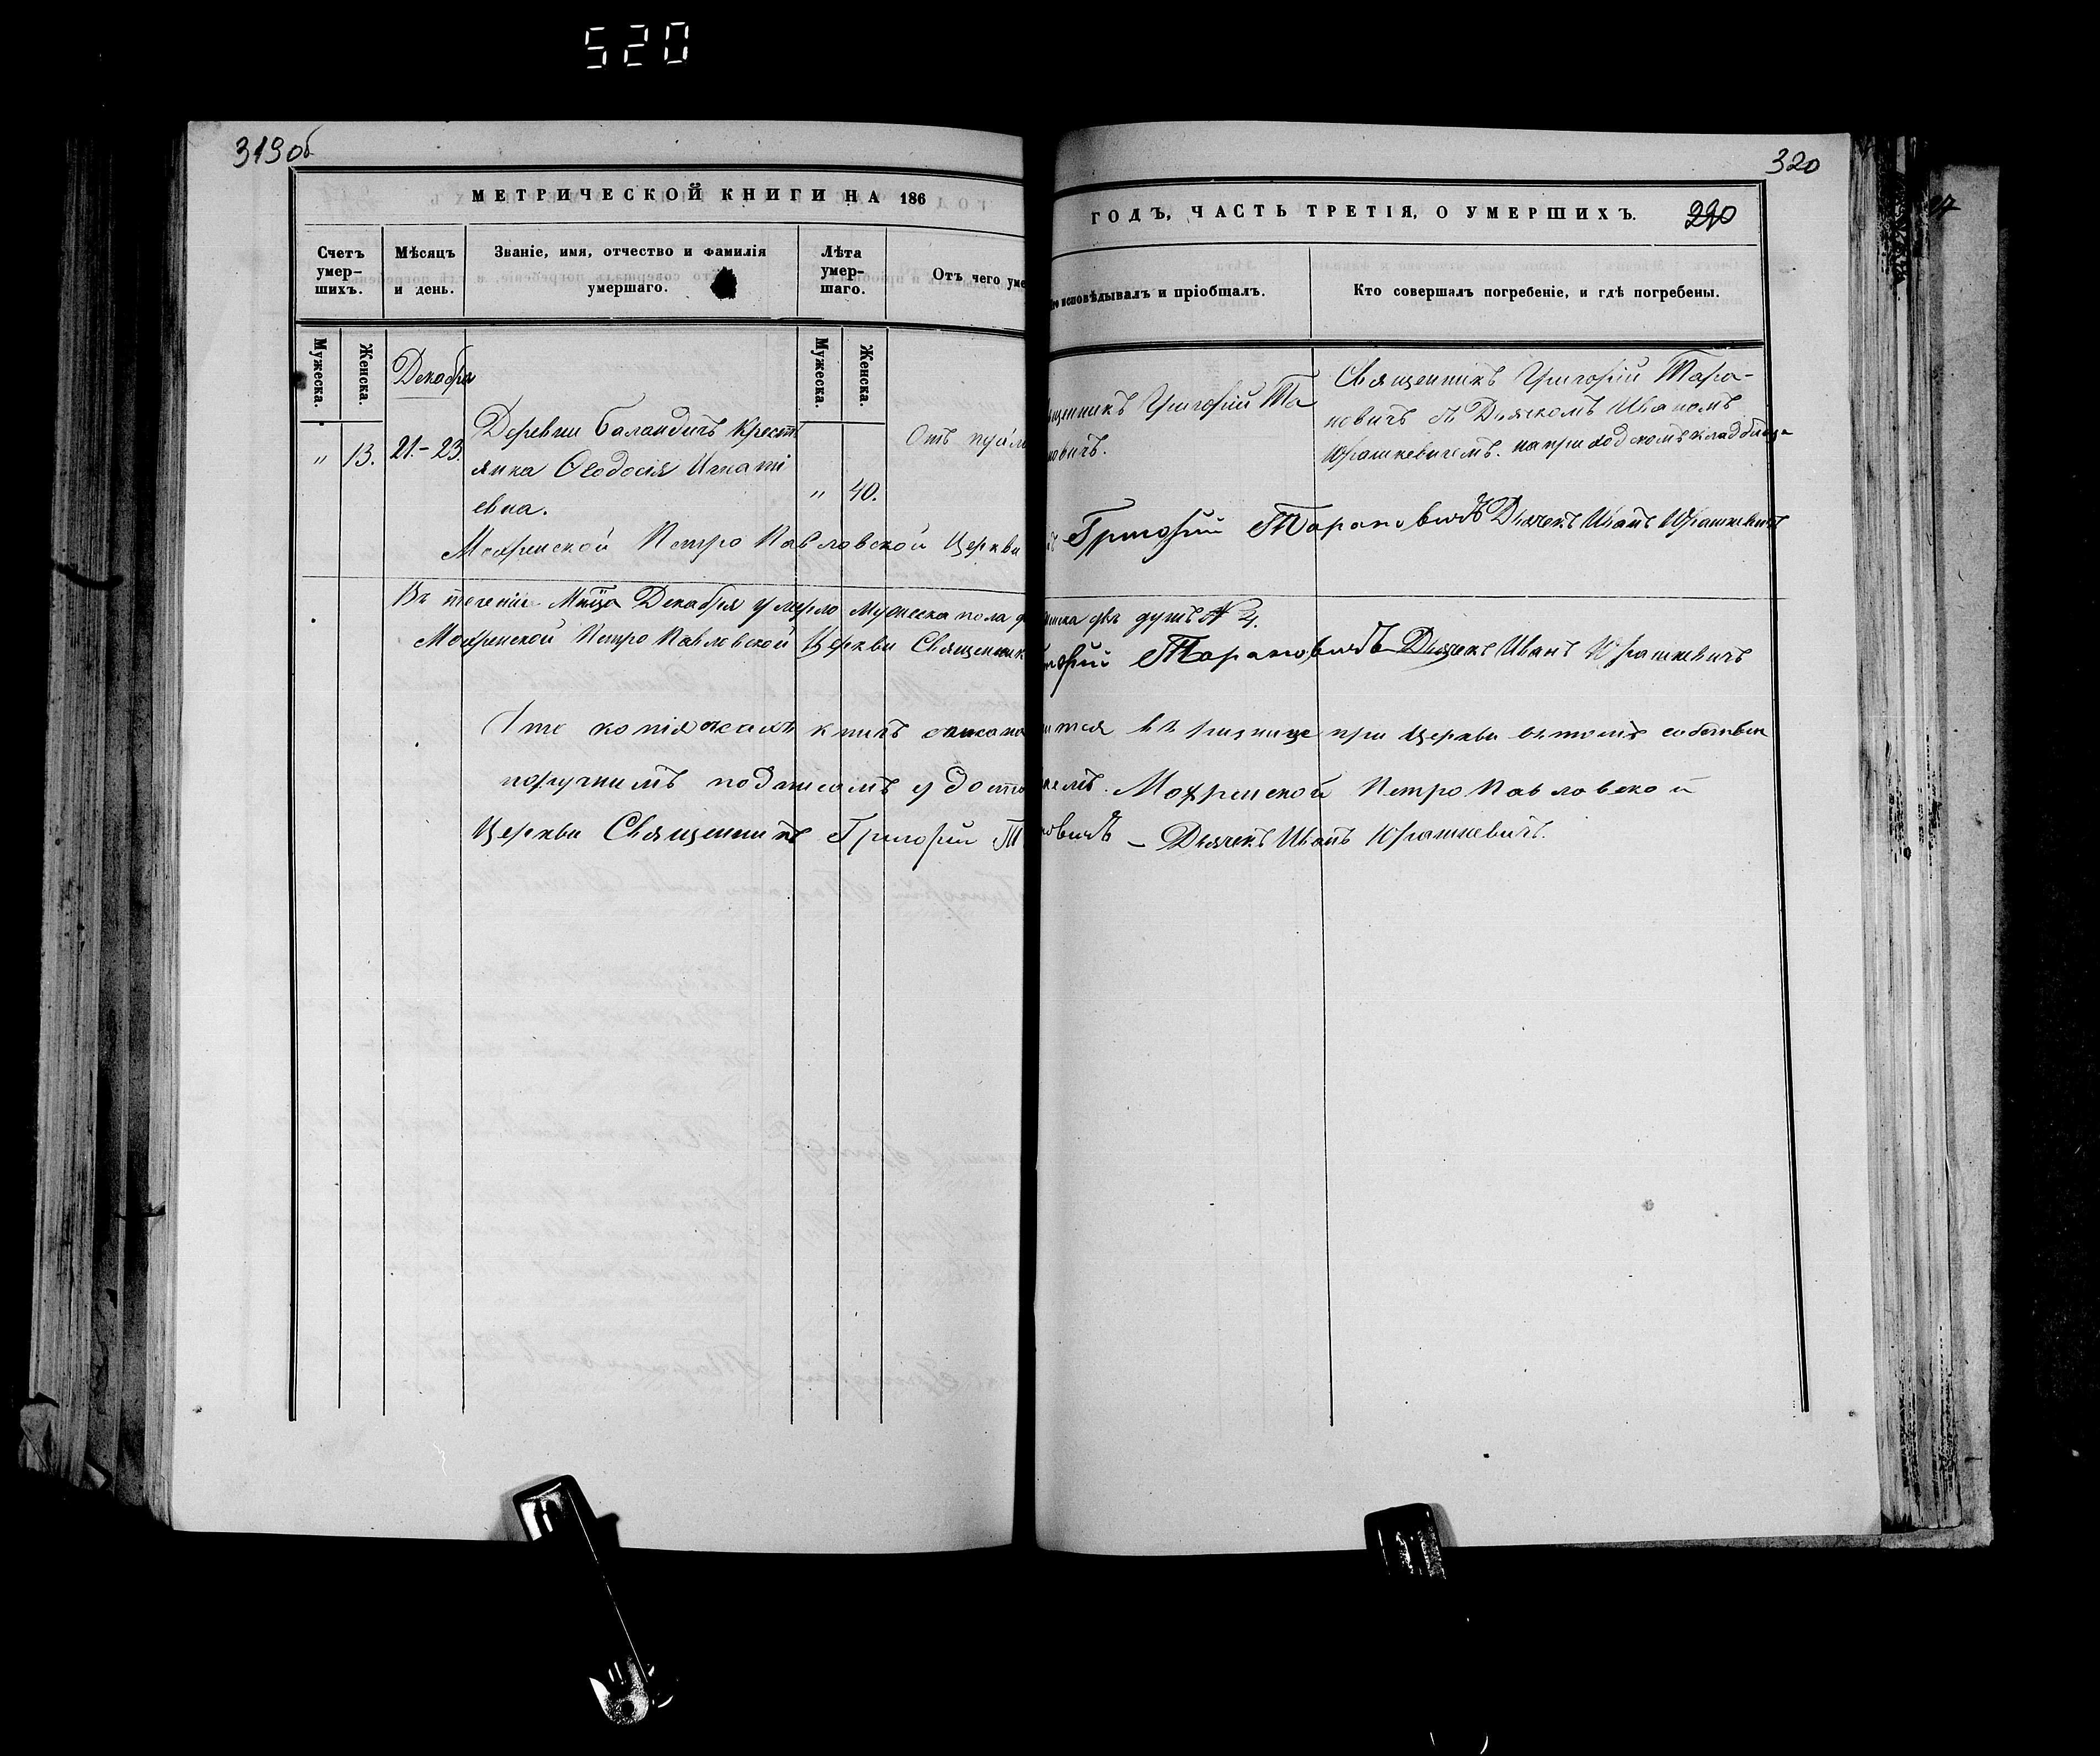 520
319об
320
МЕТРИЧЕСКОЙ КНИГИ НА 186
ГОДЪ, ЧАСТЬ ТРЕТІЯ, О УМЕРШИХЪ.
220
Счетъ умер-шихъ.
Мѣсяцъ и день.
Званіе, имя, отчество и фамилія умершаго.
Лѣта умер-шаго.
Отъ чего уме
исповѣдывалъ и пріобщалъ.
Кто совершалъ погребеніе, и гдѣ погребены.
Мужеска.
Женска.
Мужеска.
Женска.
Декабря
" 13. 21.-23.
Деревни Баландичъ крест
янка Ѳеодосія Игнаті
евна.
" 40.
Отъ
щенникъ Григорій Та
новичъ.
Священникъ Григорій Тара-
новичъ съ Дьячкомъ Иваномъ
Юрашкевичемъ. на приходскомъ кладбище
Мохринской Петро Павловской Церкви
Григорій Тарановичъ Дьячекъ Иванъ Юрашкевичъ
Въ теченіи Мца Декабря умерло мужеска пола
двѣ душъ № 2.
Мохринской Петро Павловской Церкви Священник
горій Тарановичъ Дьячекъ Иванъ Юрашкевичъ
книгъ
при Церкви въ томъ собствен
норучнимъ подписомъ
Мохринской Петро Павловской
Церкви Священникъ Григорій Т
новичъ – Дьячекъ Иванъ Юрашкевичъ.